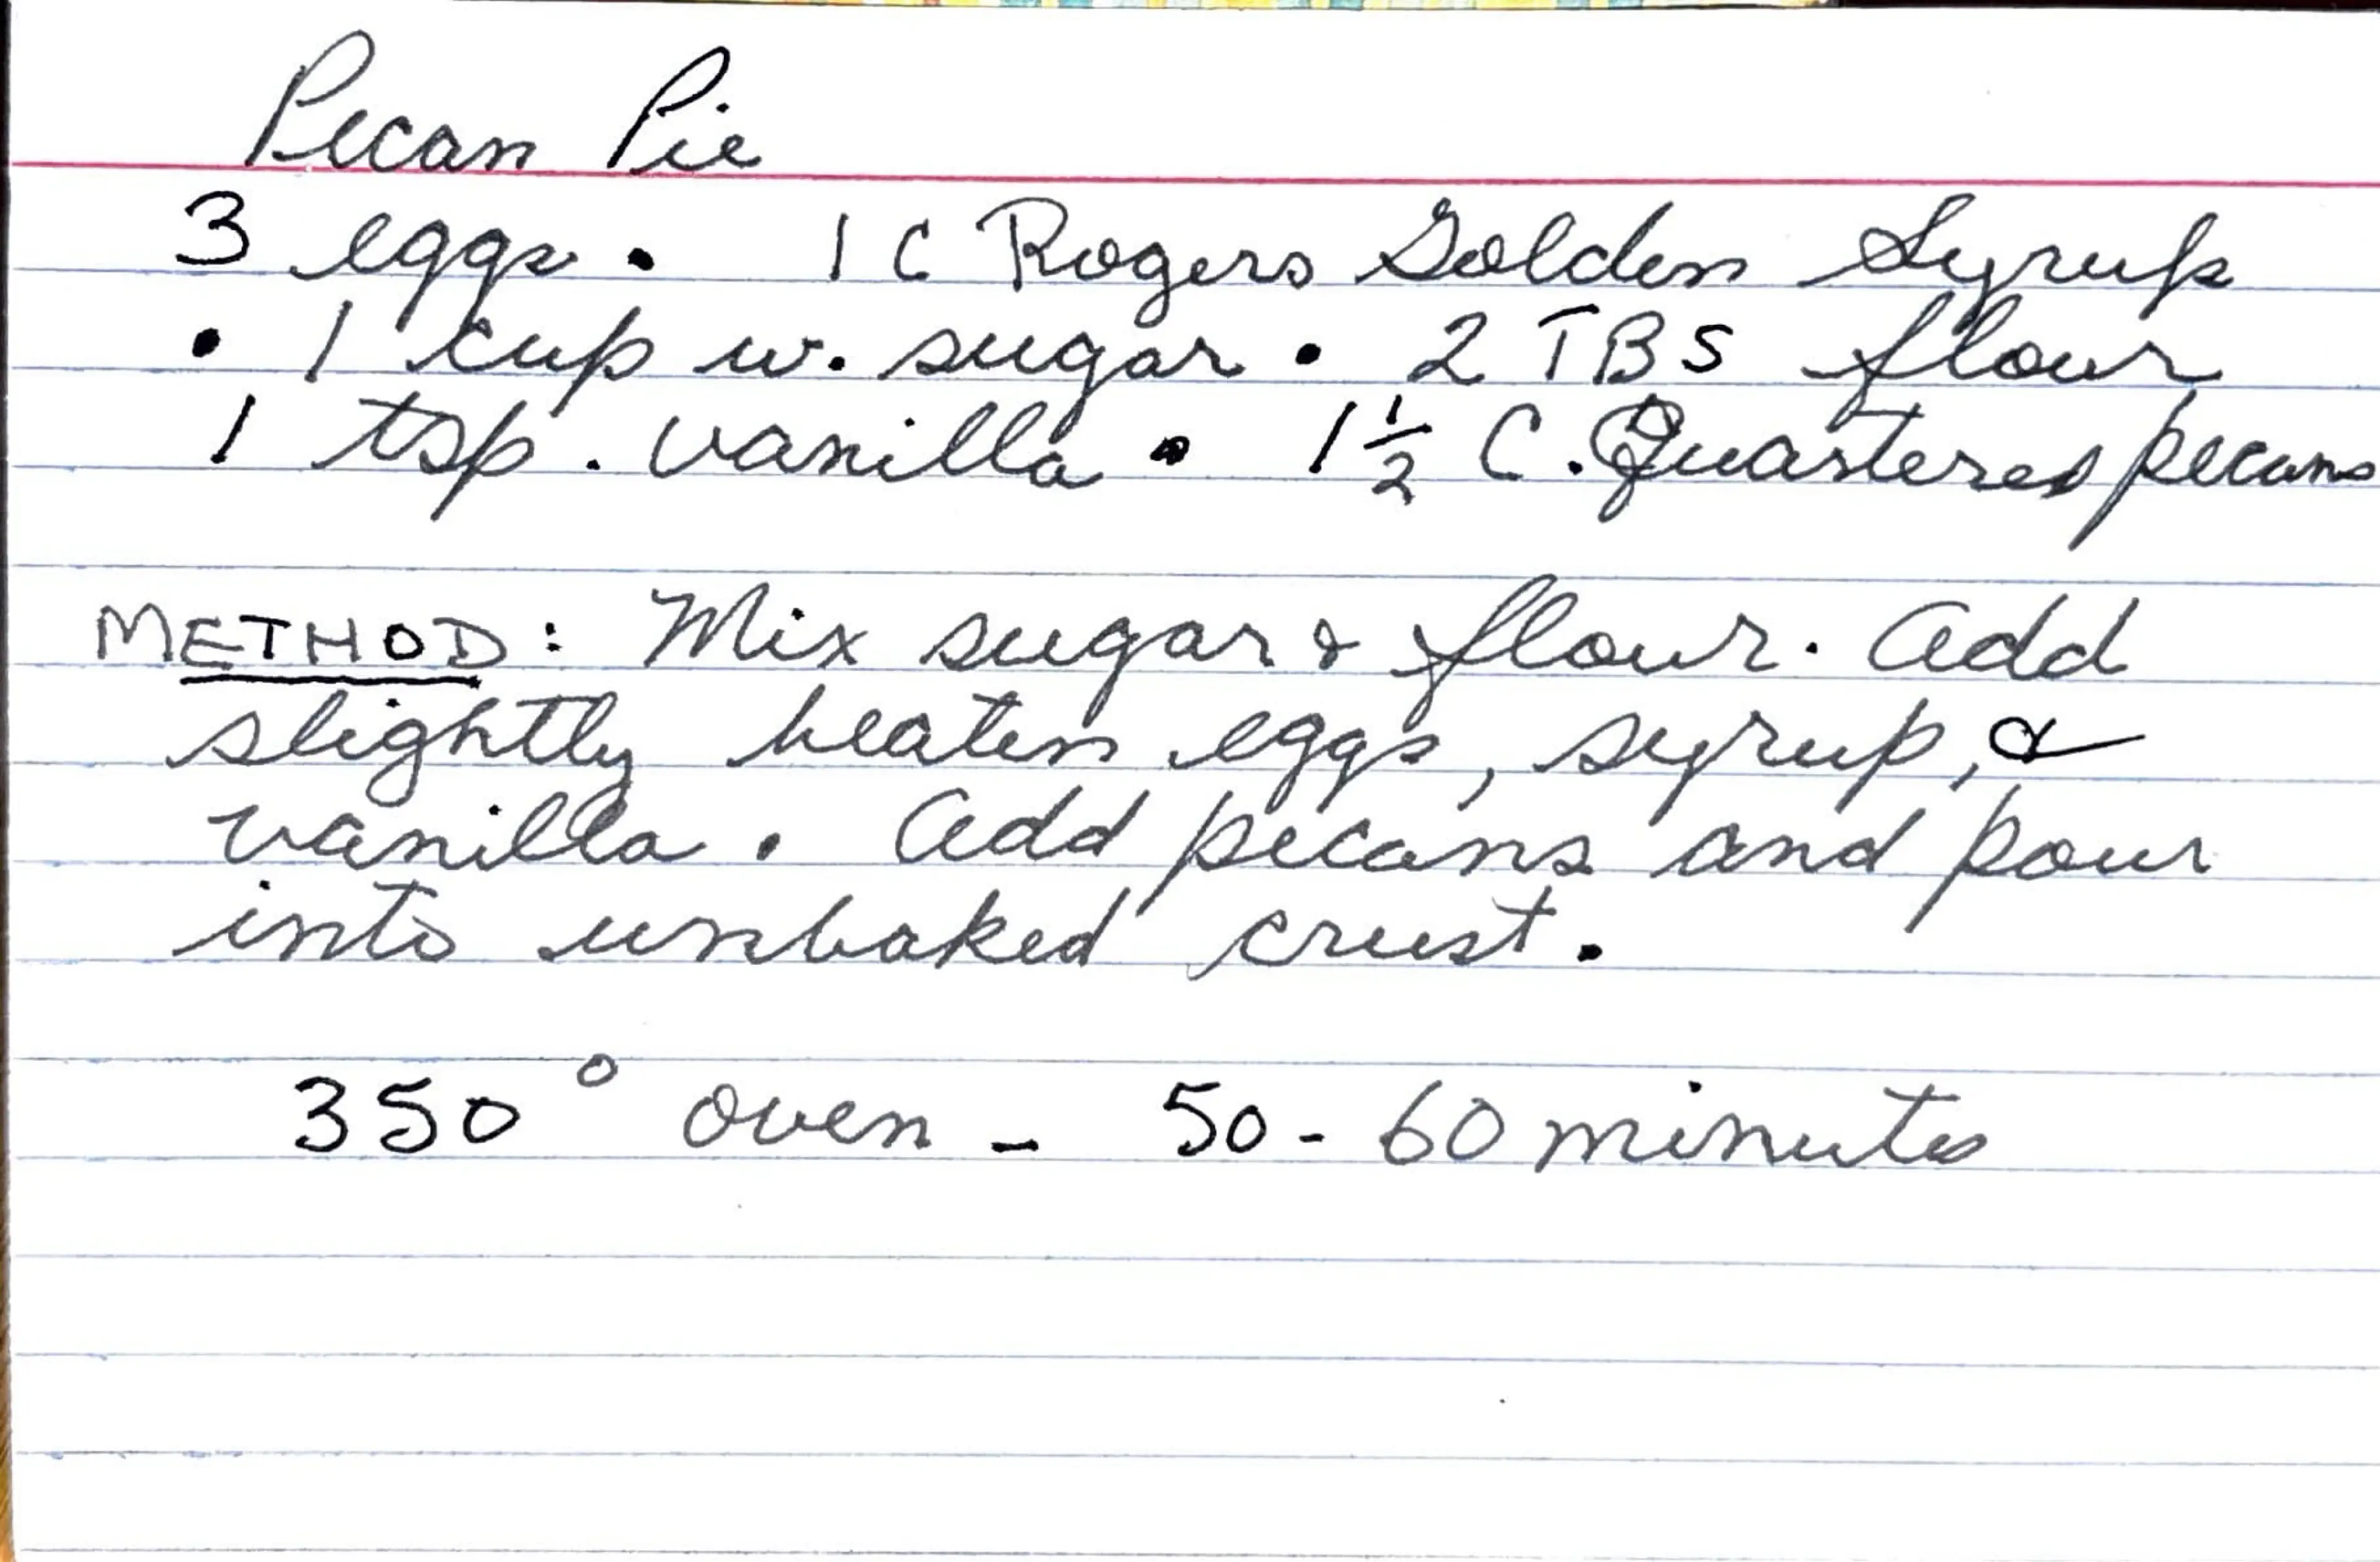 Pecan Pie
3 eggs • 1 C Rogers Golden Syrup
• 1 cup w. sugar • 2 TBS flour
1 tsp. vanilla • 1½ C. Quartered pecans
METHOD: Mix sugar & flour. Add
slightly beaten eggs, syrup, &
vanilla. Add pecans and pour
into unbaked crust.
350° oven - 50-60 minutes